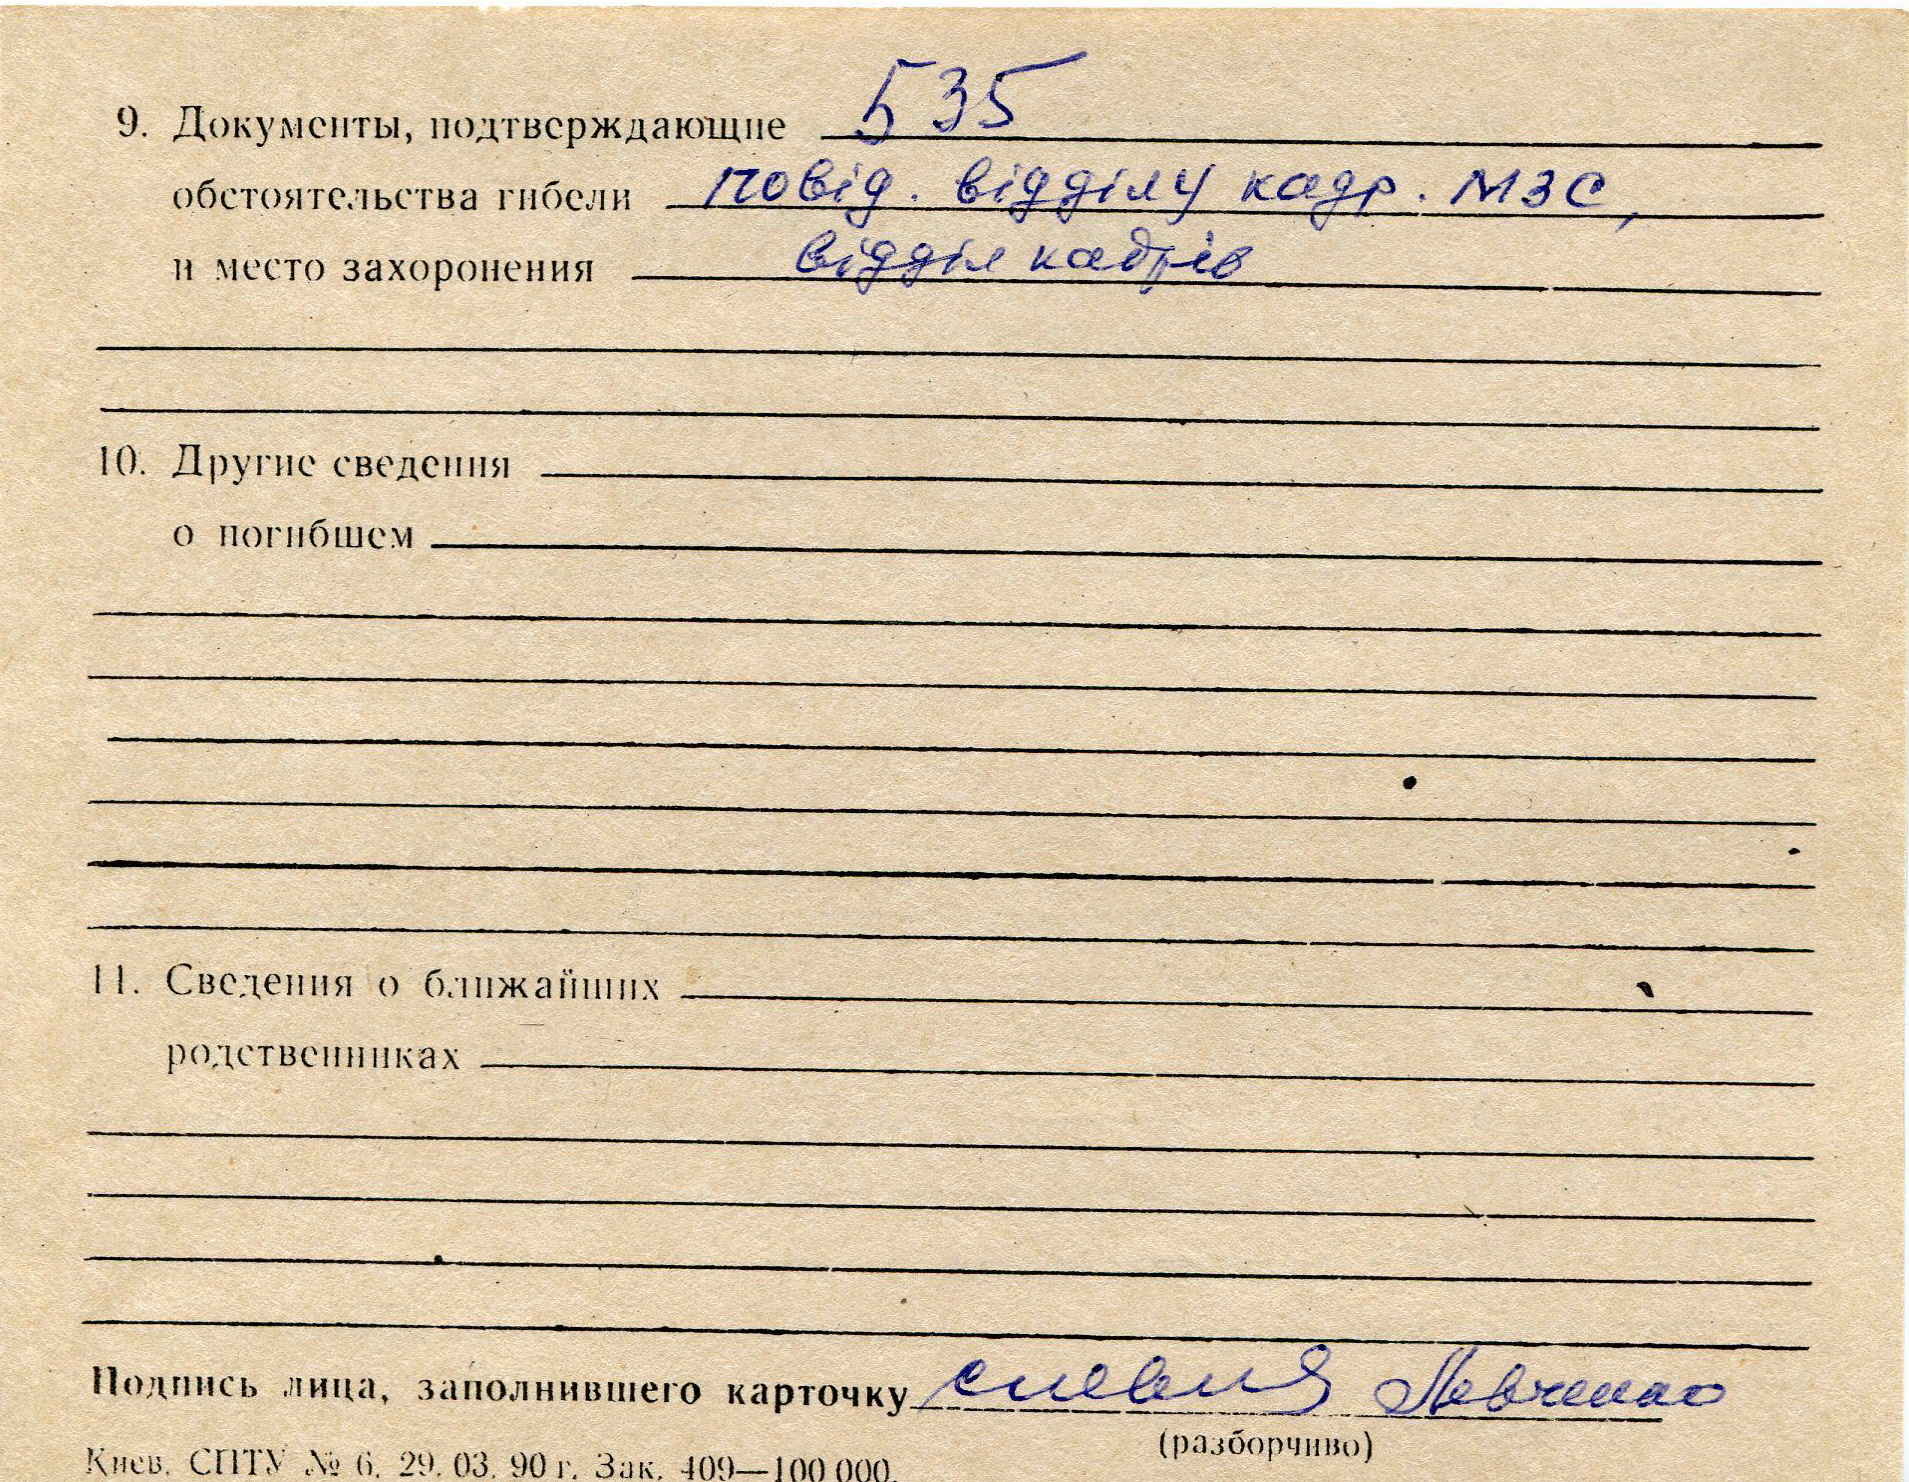 9. Документы, подтверждающие 535
обстоятельства гибели повід. відділу кадр. МЗС,
и место захоронения відділ кадрів
10. Другие сведения
о погибшем
11. Сведения о ближайших
родственниках
Подпись лица, заполнившего карточку Левченко
(разборчиво)
Киев. СПТУ № 6. 29. 03. 90 г. Зак. 409—100 000.